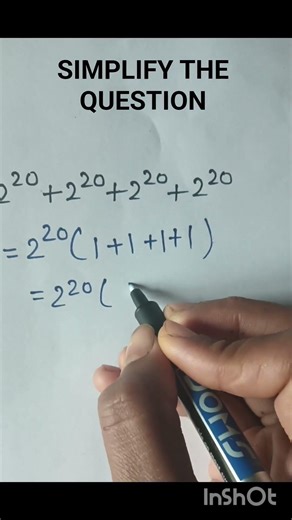 SIMPLIFY THE
QUESTION
2²⁰+2²⁰+2²⁰+2²⁰
=2²⁰(1+1+1+1)
=2²⁰(
InShOt